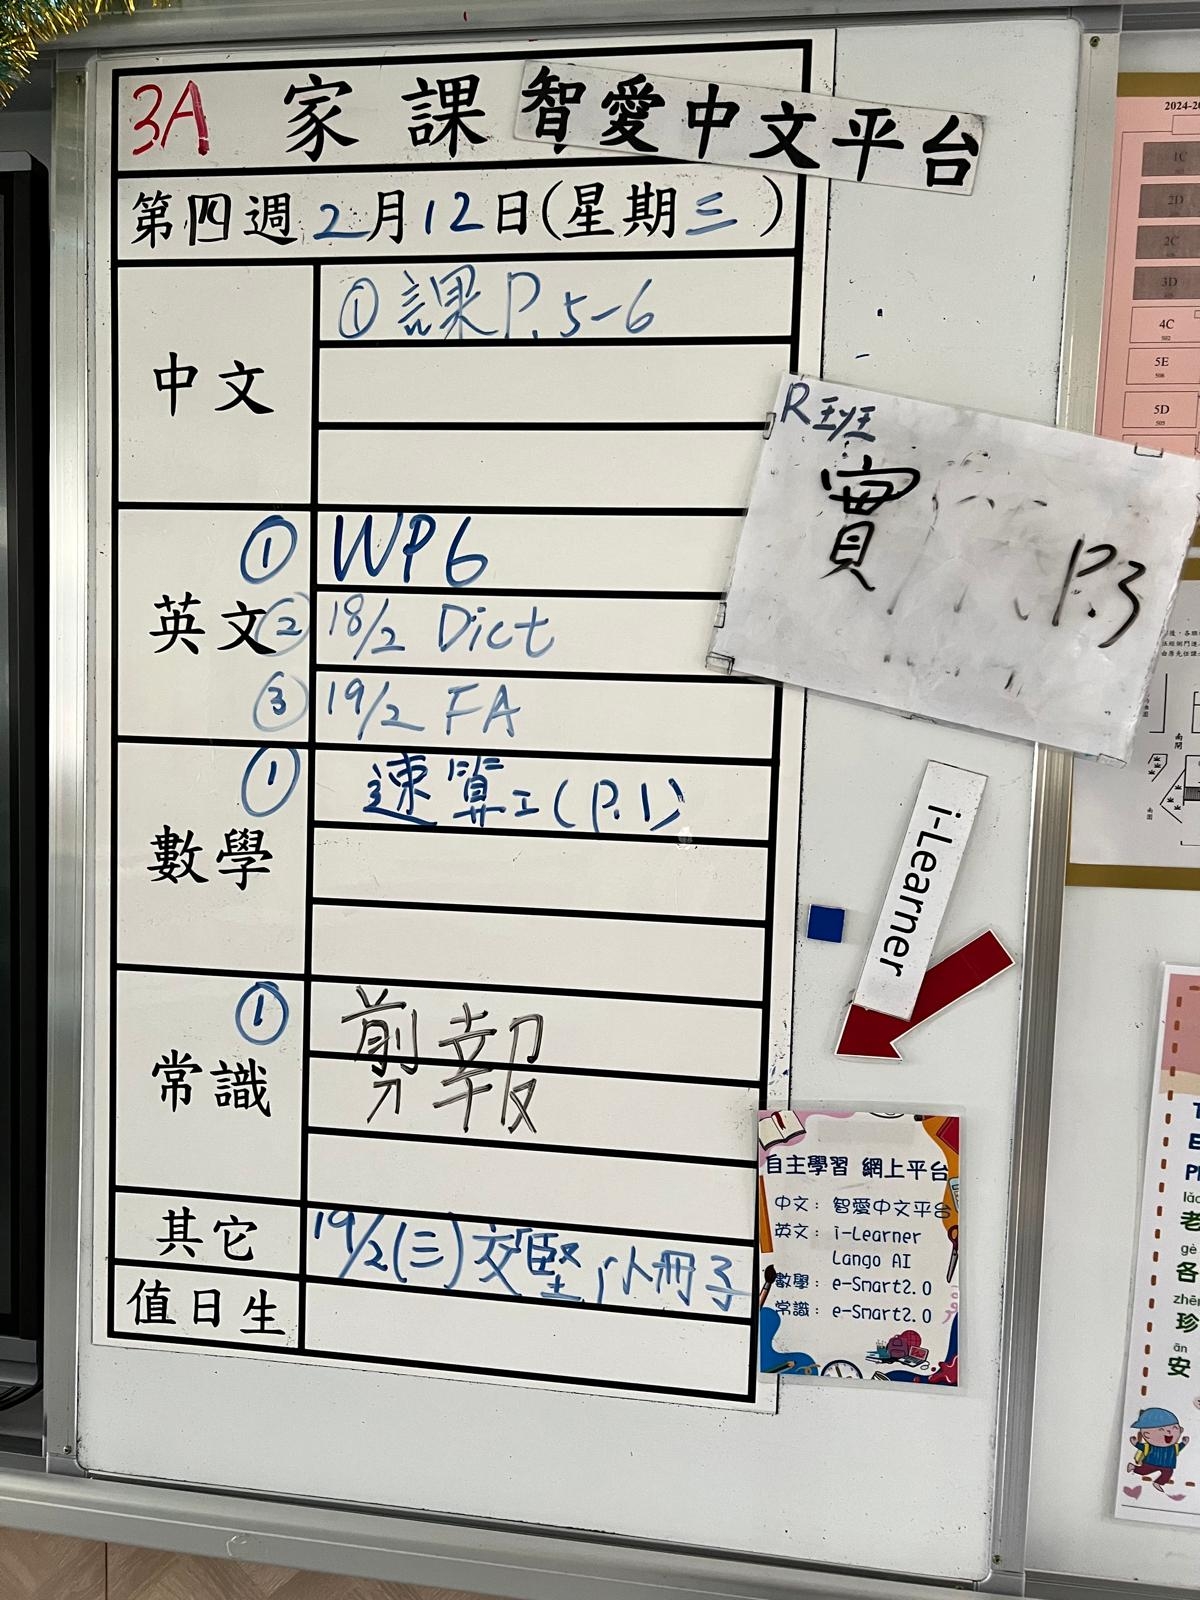 3A 家課 智愛中文平台
第四週 2月12日(星期三)
中文
① 課P.5-6
英文
① WP6
② 18/2 Dict
③ 19/2 FA
數學
① 速算工(P.1)
常識
① 剪報
其它
19/2(三)交 小冊子
值日生
R班
P.3
i-Learner
自主學習 網上平台
中文：智愛中文平台
英文：i-Learner
Lango AI
數學：e-Smart2.0
常識：e-Smart2.0
2024-20
1C
2D
2C
3D
4C
502
5E
506
5D
505
南
閘
老
gè
各
zhēn
珍
ān
安